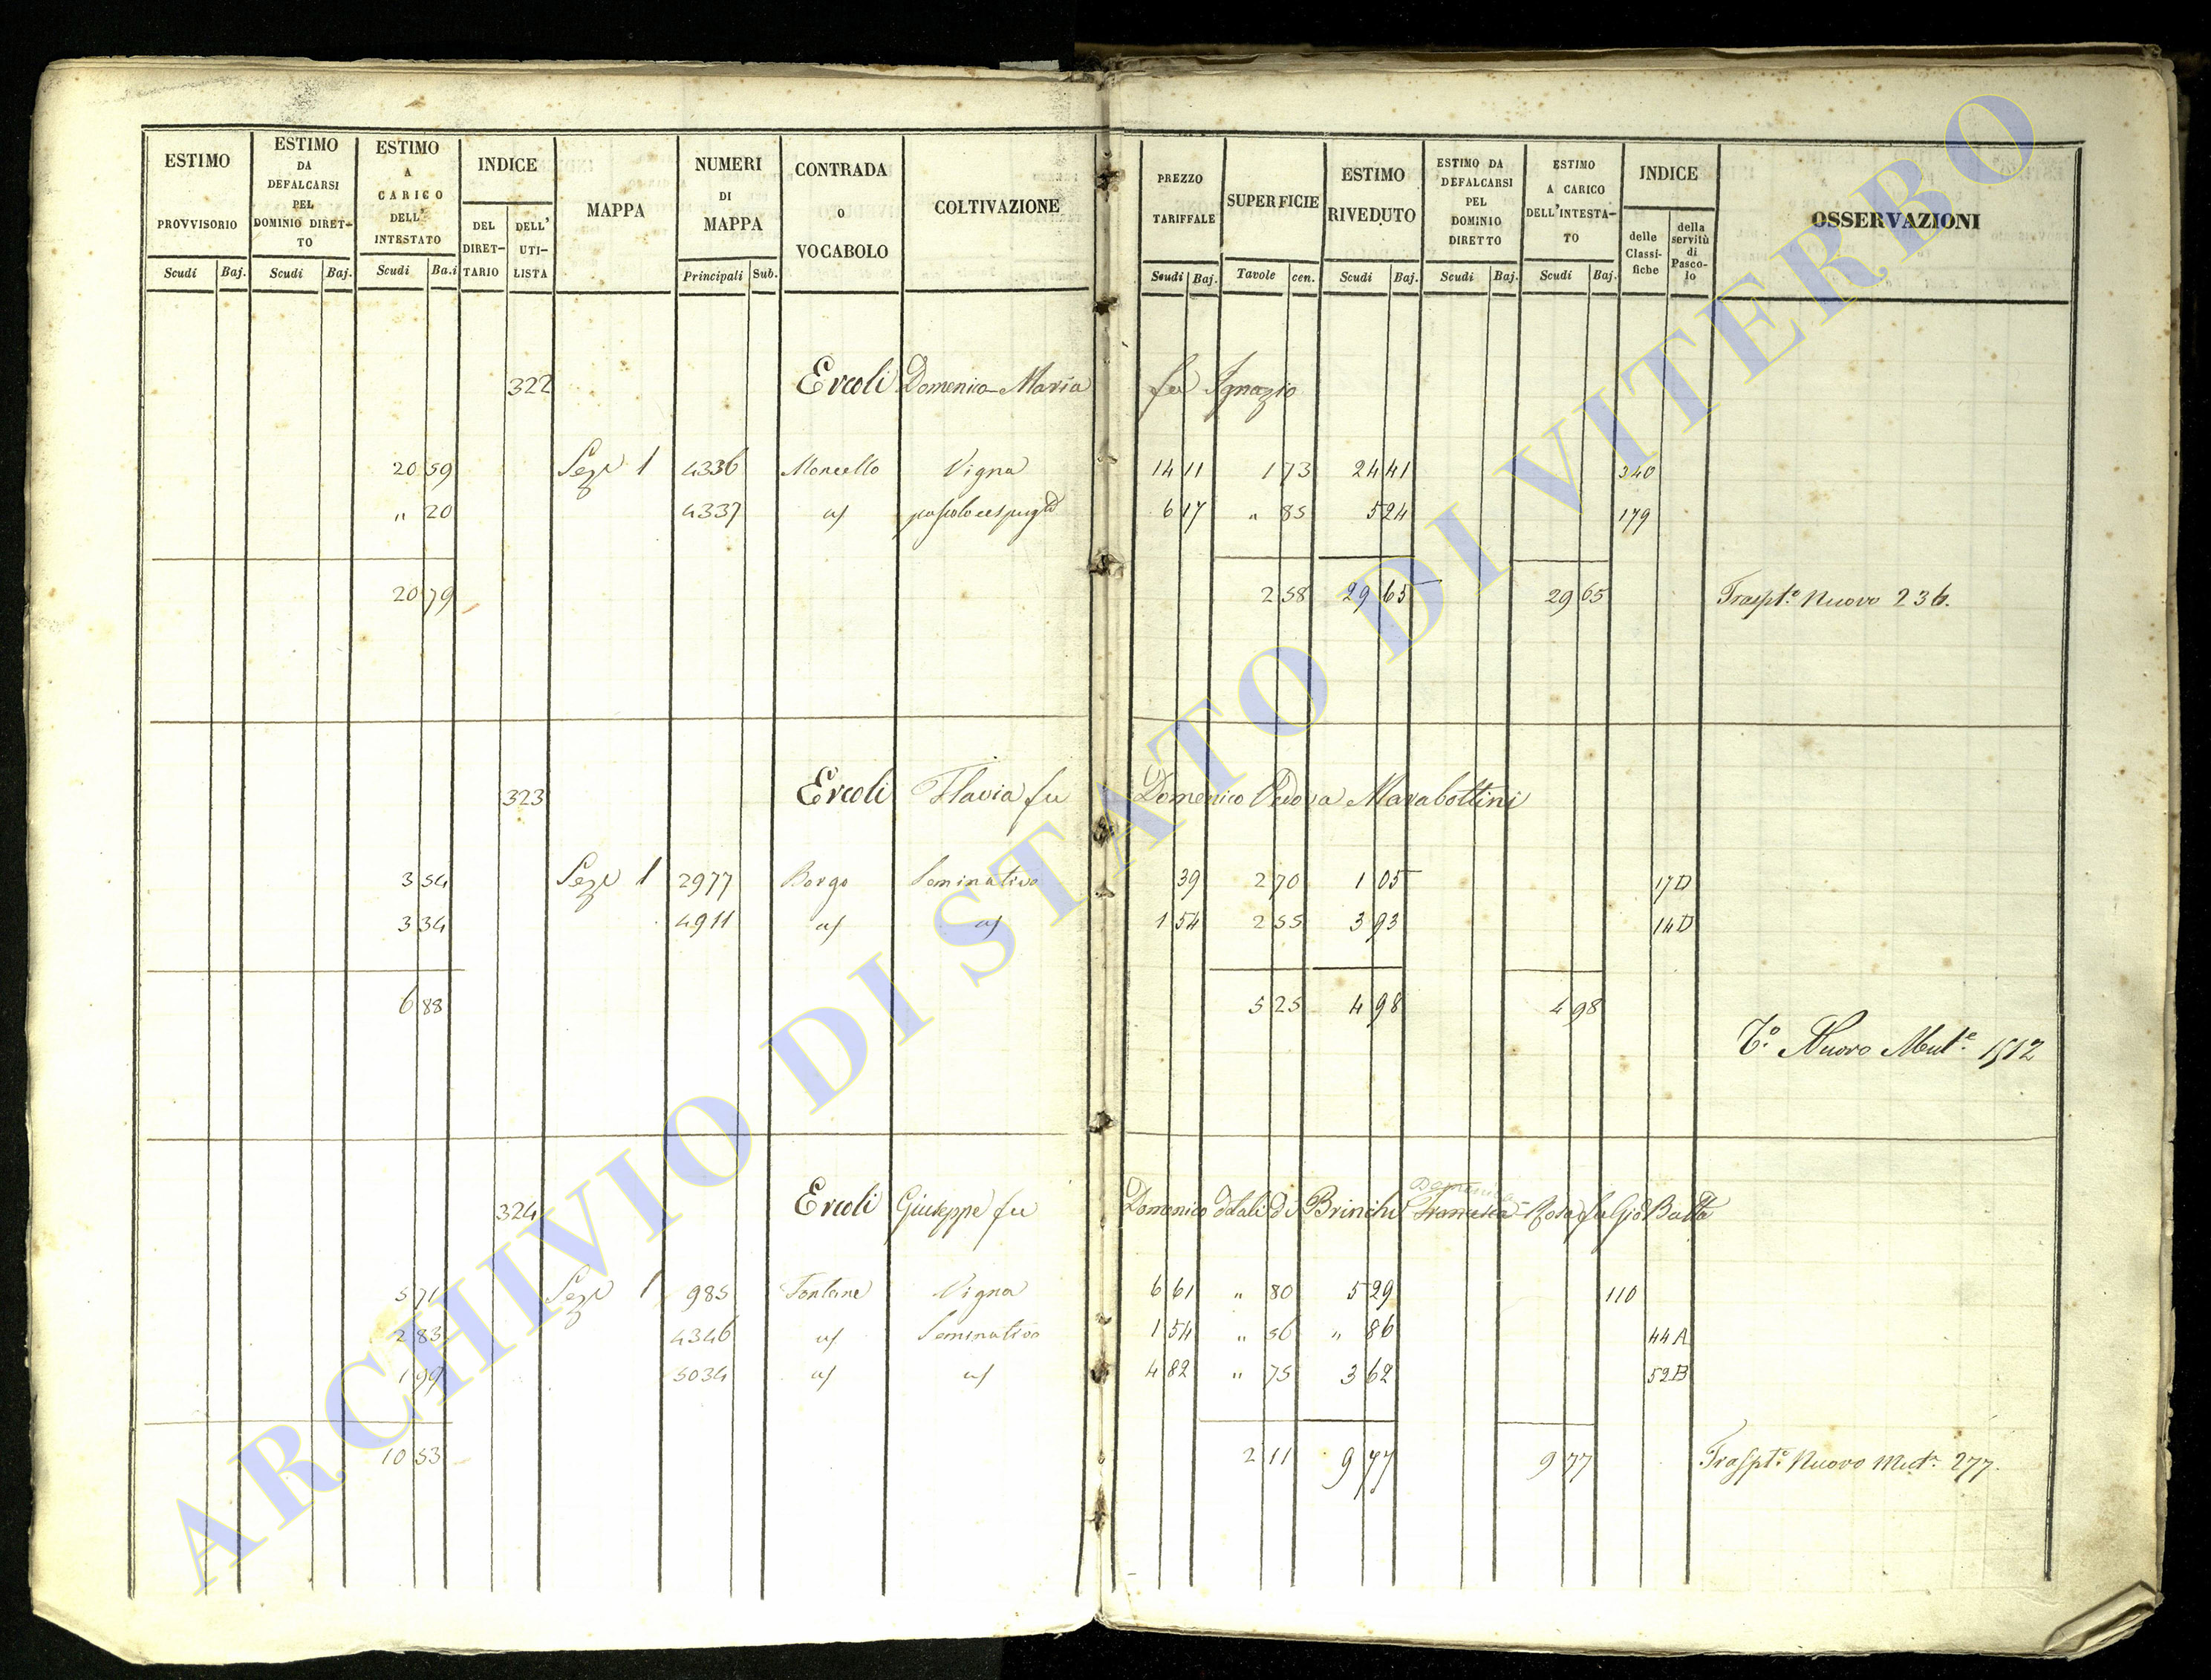 ESTIMO PROVVISORIO
Scudi Baj.
ESTIMO DA DEFALCARSI PEL DOMINIO DIRET-TO
Scudi Baj.
ESTIMO A CARICO DELL' INTESTATO
Scudi Ba.i
INDICE
DEL DIRET-TARIO
DELL' UTI-LISTA
MAPPA
NUMERI DI MAPPA
Principali Sub.
CONTRADA O VOCABOLO
COLTIVAZIONE
PREZZO TARIFFALE
Scudi Baj.
SUPERFICIE
Tavole cen.
ESTIMO RIVEDUTO
Scudi Baj.
ESTIMO DA DEFALCARSI PEL DOMINIO DIRETTO
Scudi Baj.
ESTIMO A CARICO DELL'INTESTA-TO
Scudi Baj.
INDICE
delle Classi-fiche
della servitù di Pasco-lo
OSSERVAZIONI
322 Ercoli Domenico Maria fu Ignazio
20 59 Sezne 1 4336 Moncello Vigna 14 11 1 73 24 41 340
" 20 4337 a/ 6 17 " 85 5 24 179
20 79 2 58 29 65 29 65 Traspto Nuovo 236.
323 Ercoli Flavia fu Domenico Vedova Marabottini
3 54 Sezne 1 2977 Borgo Seminativo 39 2 70 1 05 17D
3 34 4911 a/ a/ 1 54 2 55 3 93 14D
6 88 5 25 4 98 4 98
To Nuovo Mute 1512
Domenica
324 Ercoli Giuseppe fu Domenico Brinchi Francesca Rosa fu Gio Batta
5 71 Sezne 1 985 Fontane Vigna 6 61 " 80 5 29 110
2 83 4346 a/ Seminativo 1 54 " 56 " 86 44A
1 99 5034 a/ a/ 4 82 " 75 3 62 52B
10 53 2 11 9 77 9 77 Traspto Nuovo Mut. 277.
ARCHIVIO DI STATO DI VITERBO